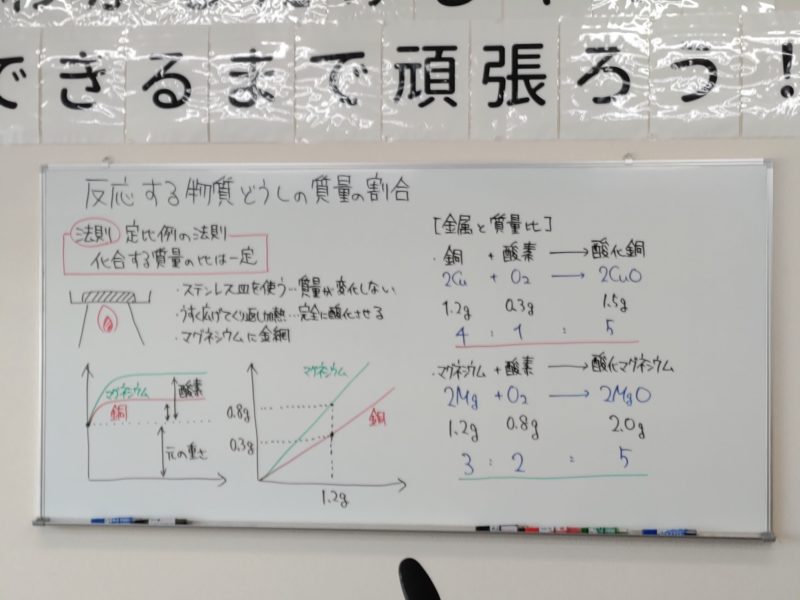 できるまで頑張ろう!
反応する物質どうしの質量の割合
法則 定比例の法則
化合する質量の比は一定
・ステンレス皿を使う…質量が変化しない
・うすく広げてくり返し加熱…完全に酸化させる
・マグネシウムに金網
マグネシウム
銅
酸素
元の重さ
マグネシウム
銅
0.8g
0.3g
1.2g
[金属と質量比]
・銅 + 酸素 → 酸化銅
2Cu + O2 → 2CuO
1.2g 0.3g 1.5g
4 : 1 : 5
・マグネシウム + 酸素 → 酸化マグネシウム
2Mg + O2 → 2MgO
1.2g 0.8g 2.0g
3 : 2 : 5